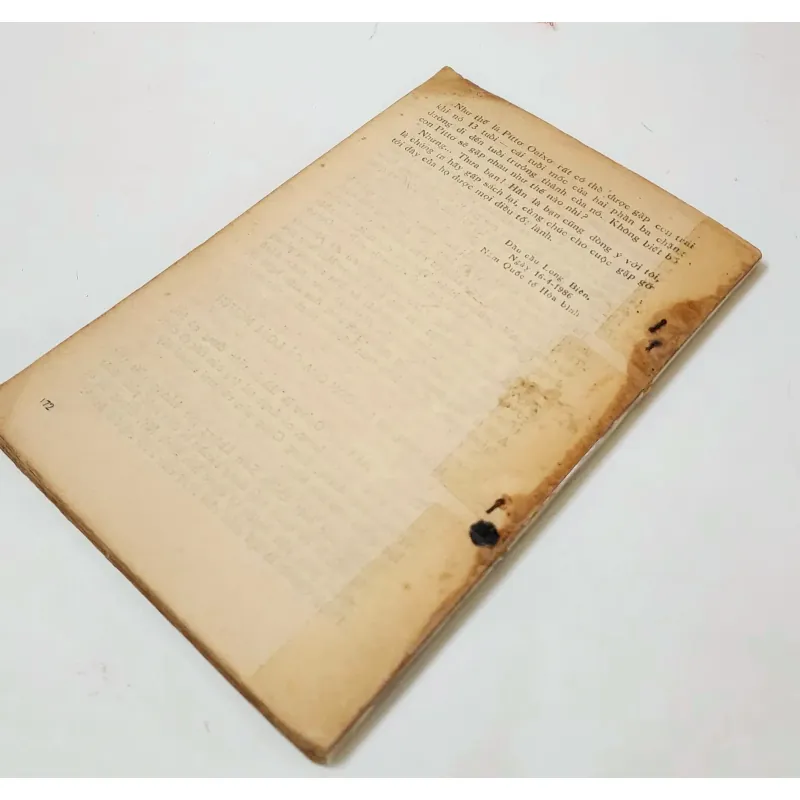 Như thế là Pitto Oaixơ rất có thể được gặp con trai
khi nó 13 tuổi — cái tuổi mốc của hai phần ba chặng
đường đi đến tuổi trưởng thành của nó. Không biết bố
con Pitto sẽ gặp nhau như thế nào nhỉ?
Nhưng... Thưa bạn! Hẳn là bạn cũng đồng ý với tôi,
là chúng ta hãy gấp sách lại, cũng chúc cho cuộc gặp gỡ
tới đây của họ được mọi điều tốt lành.
Đầu cầu Long Biên,
Ngày 16-4-1986
Năm Quốc tế Hòa bình
172